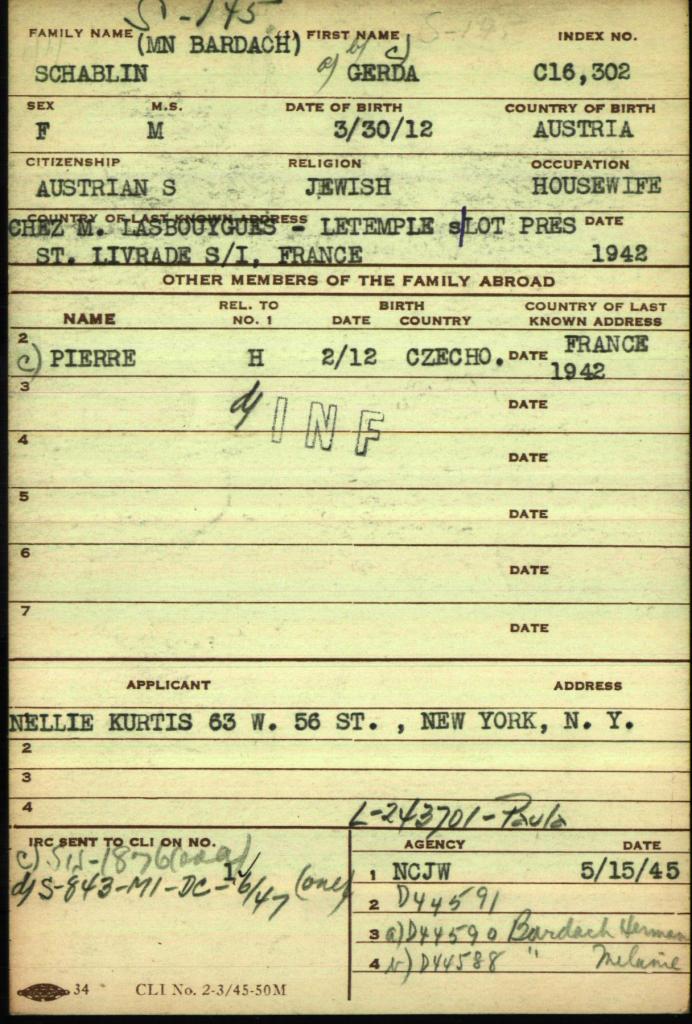 S-145
FAMILY NAME (MN BARDACH) FIRST NAME INDEX NO.
SCHABLIN a) b) c) GERDA C16,302
SEX M.S. DATE OF BIRTH COUNTRY OF BIRTH
F M 3/30/12 AUSTRIA
CITIZENSHIP RELIGION OCCUPATION
AUSTRIAN S JEWISH HOUSEWIFE
COUNTRY OF LAST KNOWN ADDRESS DATE
CHEZ M. LASBOUYGUES - LETEMPLE s/LOT PRES
ST. LIVRADE S/I, FRANCE 1942
OTHER MEMBERS OF THE FAMILY ABROAD
NAME REL. TO NO. 1 BIRTH DATE COUNTRY COUNTRY OF LAST KNOWN ADDRESS
2 c) PIERRE H 2/12 CZECHO. DATE FRANCE 1942
3 DATE
d) INF
4 DATE
5 DATE
6 DATE
7 DATE
APPLICANT ADDRESS
NELLIE KURTIS 63 W. 56 ST. , NEW YORK, N. Y.
2
3
4 L-243701-Paula
IRC SENT TO CLI ON NO. AGENCY DATE
1 NCJW 5/15/45
d) S-843-M1-DC-16/47 (one)
2 D44591
3 a) D44590 Bardach Herman
4 b) D44588 " Melanie
34 CLI No. 2-3/45-50M